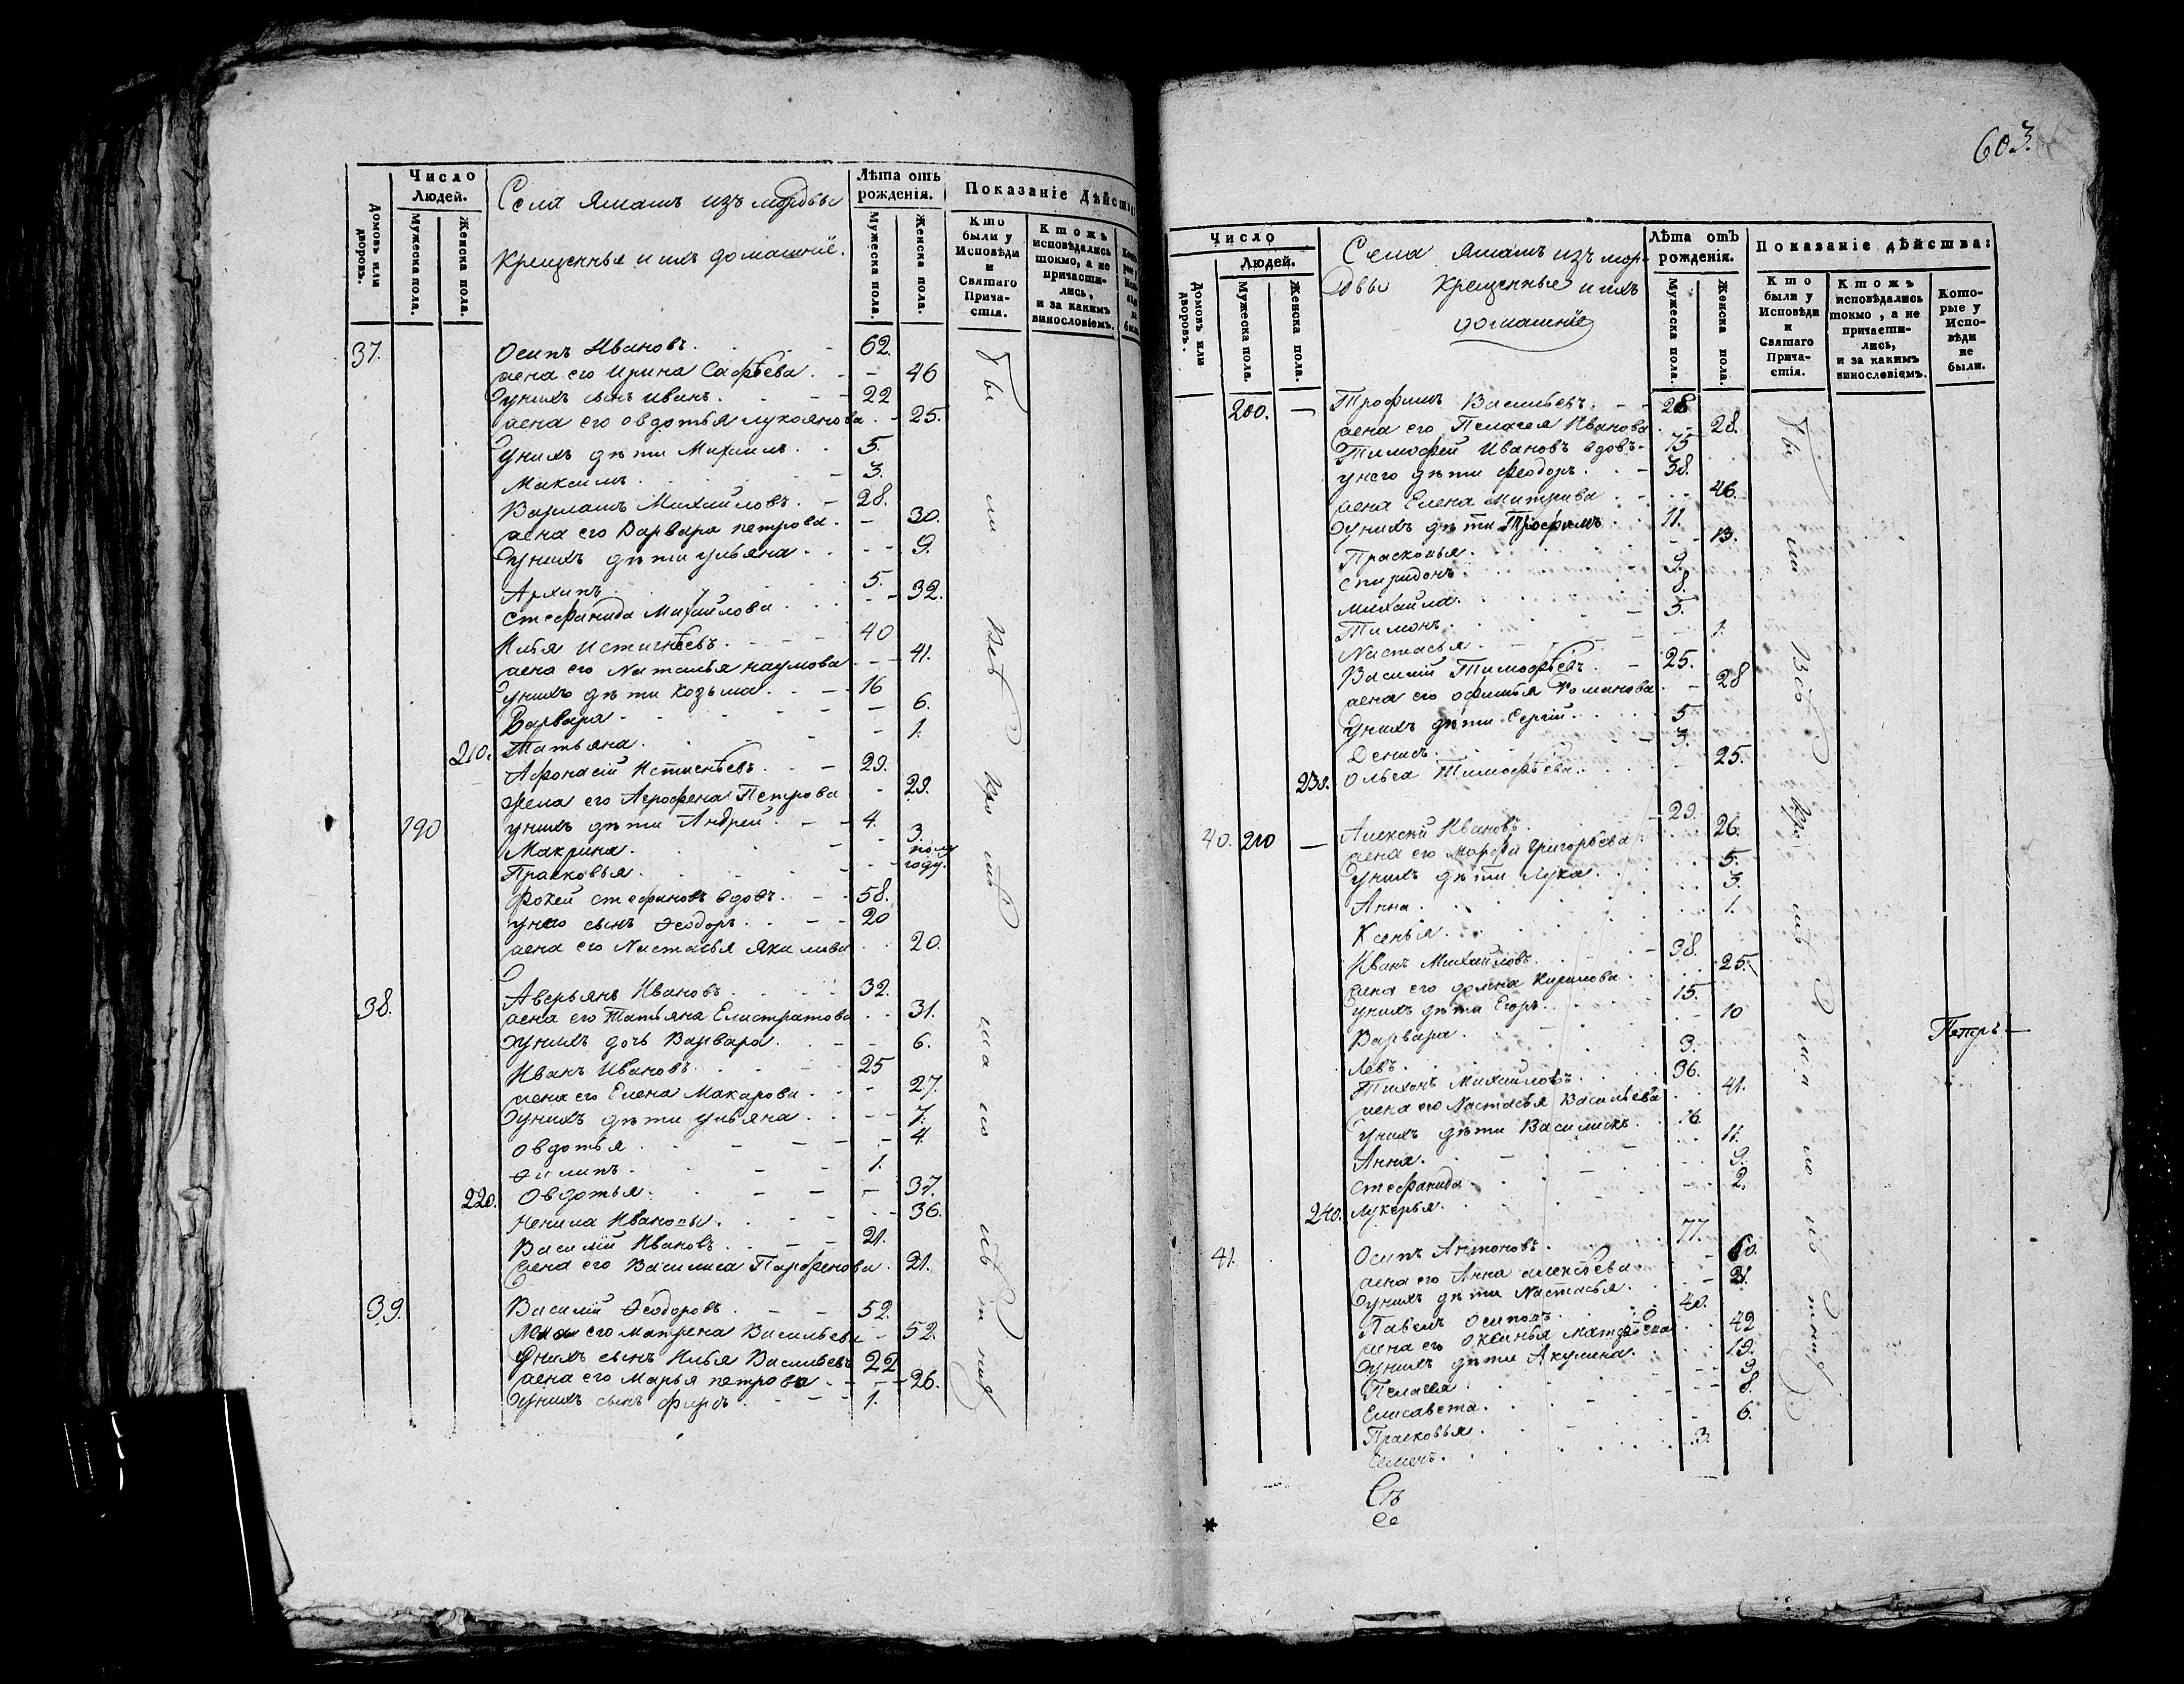 Число
Людей.
Домовъ или дворовъ.
Мужеска пола.
Женска пола.
Села Ямашъ изъ мордвы
крещенныя и ихъ домашнiе.
Лѣта отъ рожденiя.
Мужеска пола.
Женска пола.
Показанiе Дѣйств
Кто были у Исповѣди и Святаго Прича- стiя.
Ктожъ исповѣдались токмо, а не причасти- лись, и за какимъ винословiемъ.
37. Осипъ Ивановъ. 62.
жена его Ирина Савѣева. 46
у нихъ сынъ иванъ. 22
жена его овдотья лукоянова 25.
у нихъ дѣти Михаилъ. 5.
Максимъ. 3.
Варламъ Михайловъ. 28.
жена его Варвара петрова. 30.
у нихъ дѣти ульяна. 9.
Архипъ. 5.
Стефанида Михайлова. 32.
Илья Истигнѣевъ. 40
жена его Наталья наумова 41.
у нихъ дѣти Козьма. 16
Варвара. 6.
210. Татьяна. 1.
Афонасiй Истигнѣевъ. 29.
жена его Агрофена Петрова 29.
190 у нихъ дѣти Андрей. 4.
Макрина. 3.
Прасковья. полу году.
Фокей стефановъ вдовъ. 58.
у него сынъ Ѳеодоръ. 20
жена его Настасья Якимова 20.
38. Аверьянъ Ивановъ. 32.
жена его Татьяна Елистратова 31.
у нихъ дочь Варвара. 6.
Иванъ Ивановъ. 25
жена его Елена Макарова. 27.
у нихъ дѣти ульяна. 7.
овдотья. 4.
Ѳилипъ. 1.
220. Овдотья. 37.
Ненила Ивановы. 36.
Василiй Ивановъ. 21.
жена его Василиса Парфенова. 21.
39. Василiй Ѳеодоровъ. 52.
жена его матрена Васильева 52.
у нихъ сынъ Илья Васильевъ 22
жена его Марья петрова 26.
у нихъ сынъ фирсъ. 1.
603.
Число
Людей.
Домовъ или дворовъ.
Мужеска пола.
Женска пола.
Села Ямашъ изъ мор-
довы Крещенные и ихъ
домашнiе
Лѣта отъ рожденiя.
Мужеска пола.
Женска пола.
Показанiе дѣйства:
Кто были у Исповѣди и Святаго Прича- стiя.
Ктожъ исповѣдались токмо, а не причасти- лись, и за какимъ винословiемъ.
Кото- рые у Испо- вѣди не были.
200. Трофимъ Васильевъ. 28
жена его Пелагея Иванова 28.
Тимофей Ивановъ вдовъ 75
у него дѣти Феодоръ. 38.
жена Елена митрива 46.
у нихъ дѣти Трофимъ. 11.
Прасковья. 13.
Спиридонъ. 9.
Михайла. 8.
Тимонъ. 5.
Настасья. 1.
Василiй Тимофѣевъ. 25.
жена его офимья Романова 28
у нихъ дѣти Сергiй. 5
Денисъ. 3.
230. Ольга Тимофѣева. 25.
40. 210 Алексѣй Ивановъ. 29.
жена его Марфа Григорьева 26.
у нихъ дѣти Лука. 5.
Анна. 3.
Ксенья. 1.
Иванъ Михайловъ. 38.
жена его домна Кирилова. 25.
у нихъ дѣти Егоръ. 15.
Варвара. 10
Левъ. 3.
Тихонъ Михайловъ. 36.
жена его Настасья Васильева 41.
у нихъ дѣти Василискъ. 16.
Анна. 11.
Стефанида. 9.
240. Лукерья. 2.
41. Осипъ Антоновъ. 77.
жена его Анна алексѣева. 60.
у нихъ дѣти Настасья. 21.
Павелъ Осиповъ. 40.
жена его Оксинья Матвѣева 42
у нихъ дѣти Акулина. 19.
Пелагея. 9.
Елисавета. 8.
Прасковья. 6.
Семенъ. 3.
Петръ